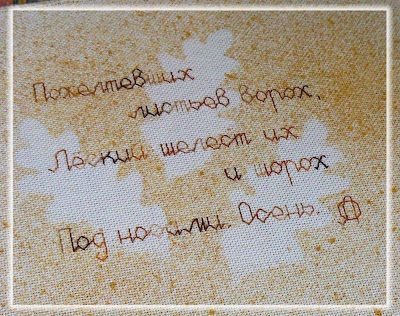 Пожелтевших
листьев ворох,
Лёгкий шелест их
и шорох
Под ногами. Осень.